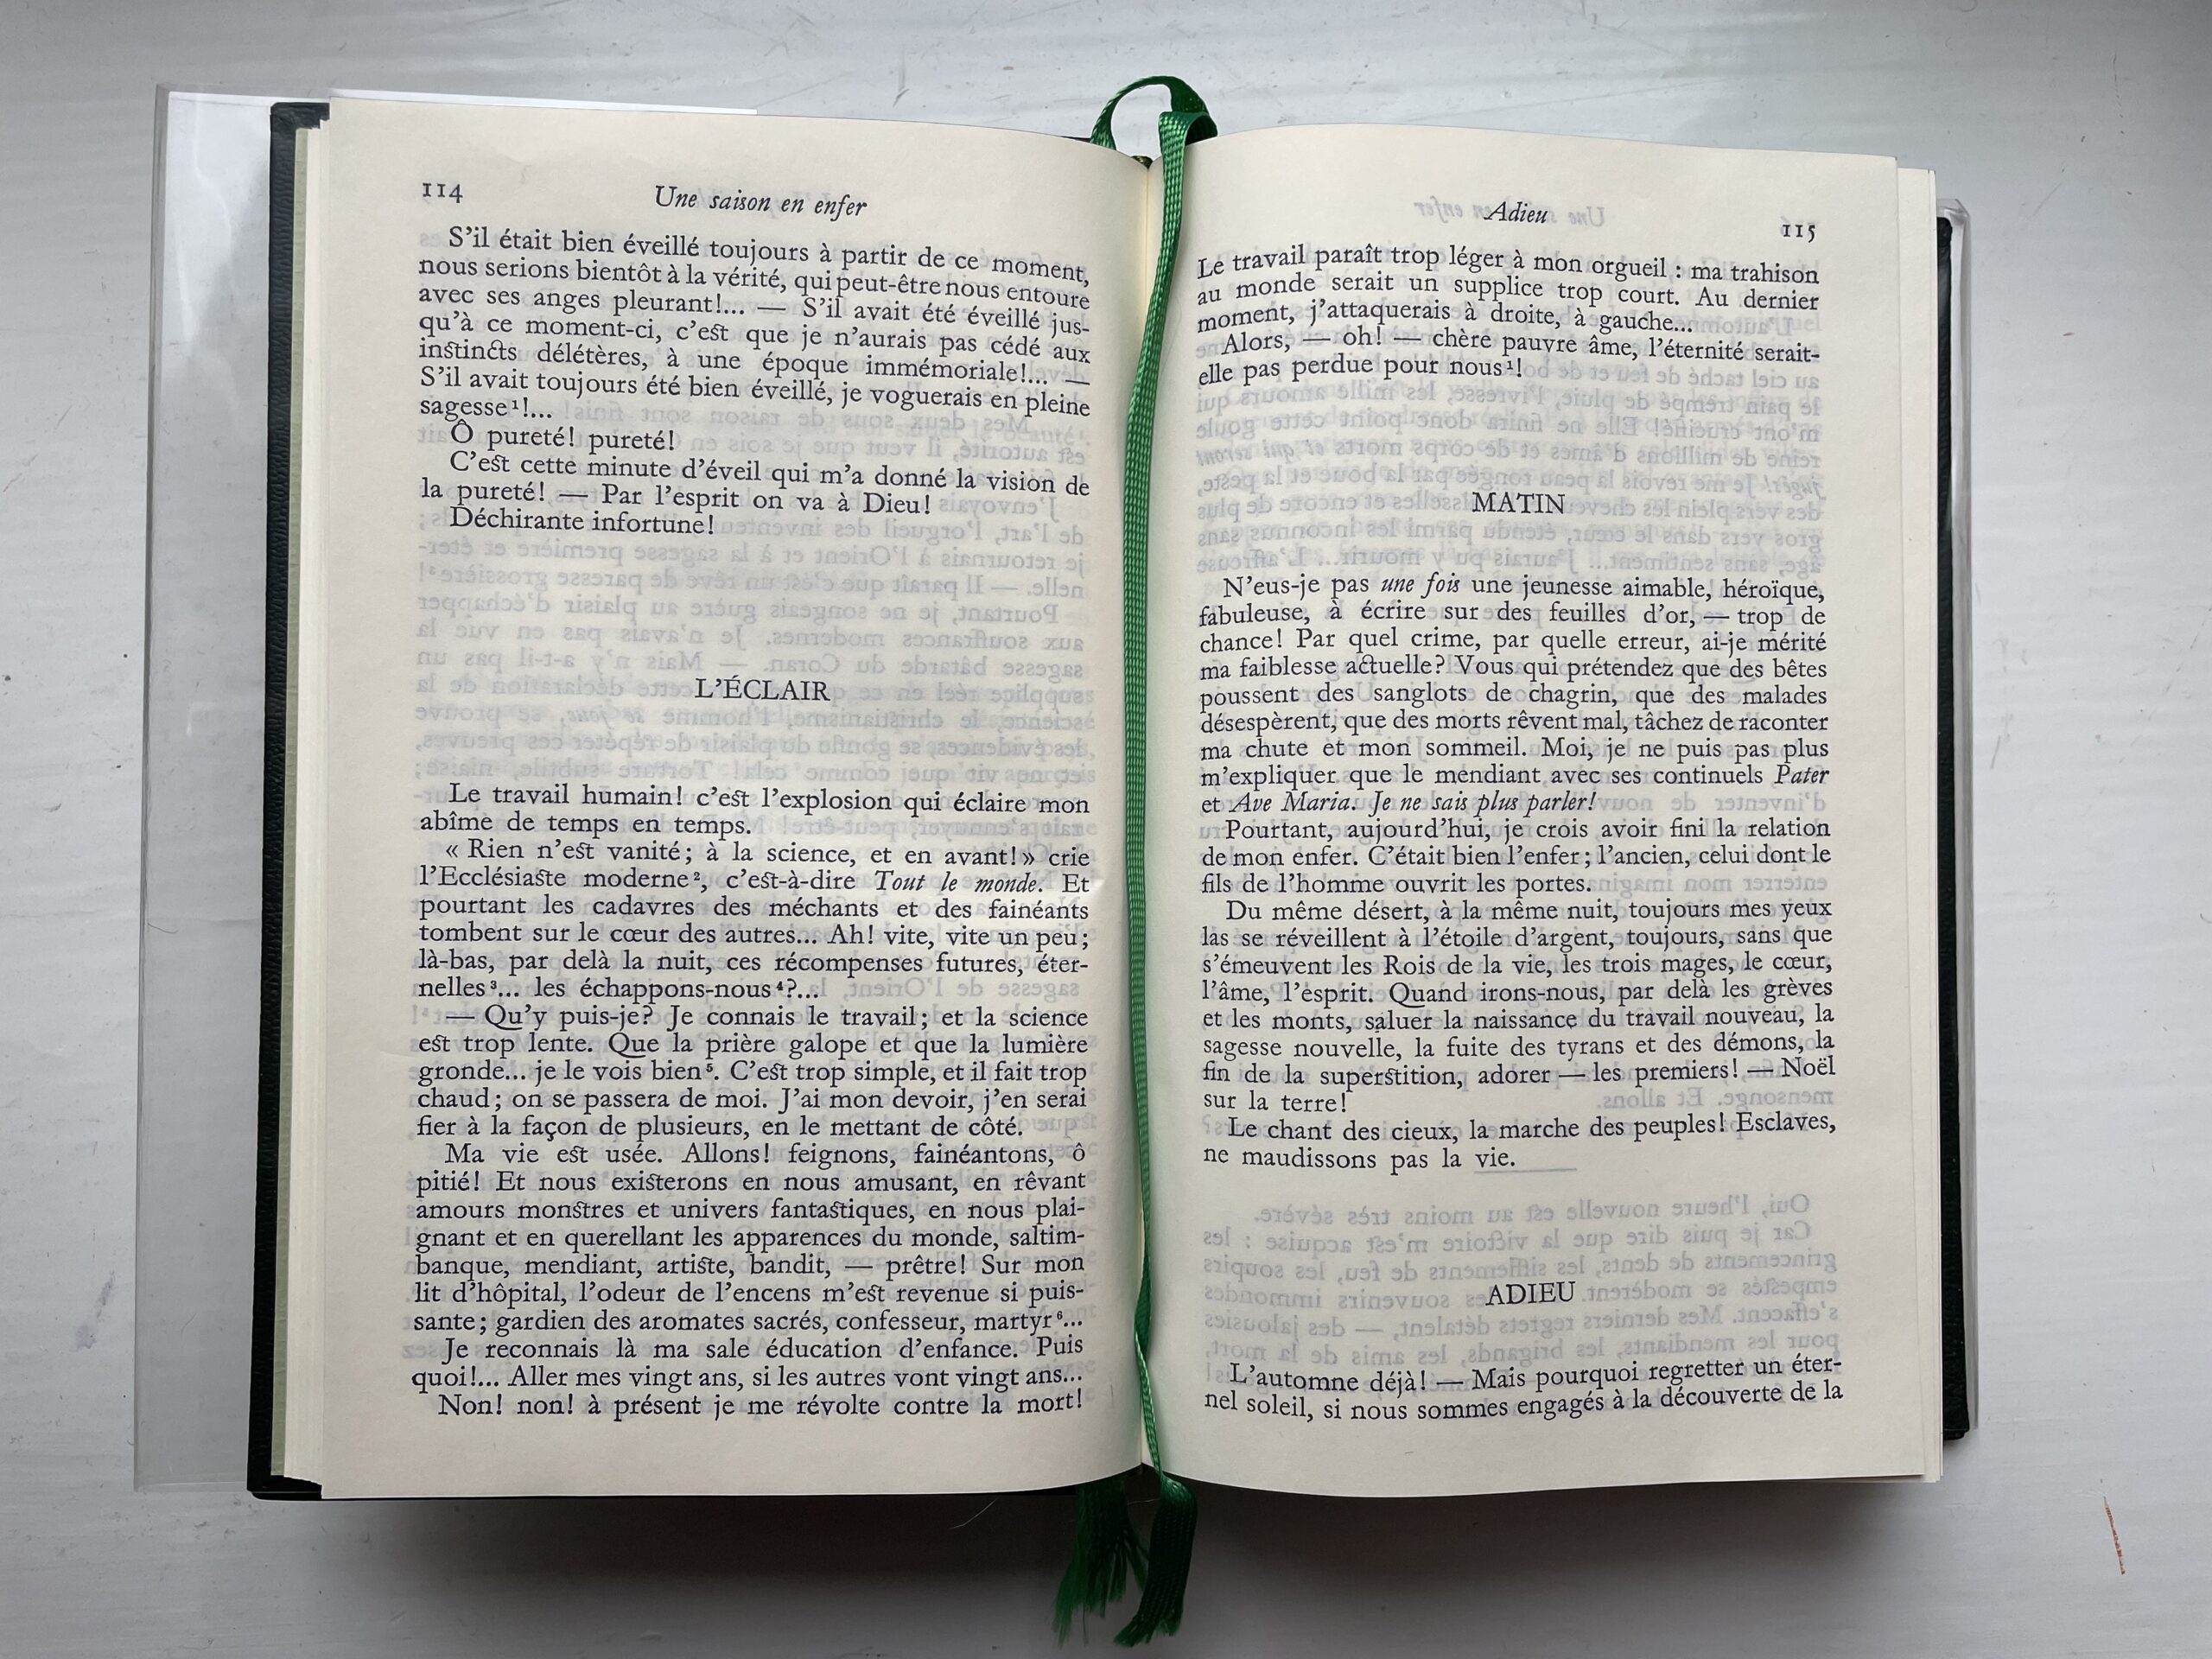 114
Une saison en enfer
S'il était bien éveillé toujours à partir de ce moment,
nous serions bientôt à la vérité, qui peut-être nous entoure
avec ses anges pleurant!... — S'il avait été éveillé jus-
qu'à ce moment-ci, c'est que je n'aurais pas cédé aux
instincts délétères, à une époque immémoriale!... —
S'il avait toujours été bien éveillé, je voguerais en pleine
sagesse¹!...
Ô pureté! pureté!
C'est cette minute d'éveil qui m'a donné la vision de
la pureté! — Par l'esprit on va à Dieu!
Déchirante infortune!
L'ÉCLAIR
Le travail humain! c'est l'explosion qui éclaire mon
abîme de temps en temps.
« Rien n'est vanité; à la science, et en avant!» crie
l'Ecclésiaste moderne², c'est-à-dire Tout le monde. Et
pourtant les cadavres des méchants et des fainéants
tombent sur le cœur des autres... Ah! vite, vite un peu;
là-bas, par delà la nuit, ces récompenses futures, éter-
nelles³... les échappons-nous⁴?...
— Qu'y puis-je? Je connais le travail; et la science
est trop lente. Que la prière galope et que la lumière
gronde... je le vois bien⁵. C'est trop simple, et il fait trop
chaud; on se passera de moi. J'ai mon devoir, j'en serai
fier à la façon de plusieurs, en le mettant de côté.
Ma vie est usée. Allons! feignons, fainéantons, ô
pitié! Et nous existerons en nous amusant, en rêvant
amours monstres et univers fantastiques, en nous plai-
gnant et en querellant les apparences du monde, saltim-
banque, mendiant, artiste, bandit, — prêtre! Sur mon
lit d'hôpital, l'odeur de l'encens m'est revenue si puis-
sante; gardien des aromates sacrés, confesseur, martyr⁶...
Je reconnais là ma sale éducation d'enfance. Puis
quoi!... Aller mes vingt ans, si les autres vont vingt ans...
Non! non! à présent je me révolte contre la mort!
Adieu
115
Le travail paraît trop léger à mon orgueil : ma trahison
au monde serait un supplice trop court. Au dernier
moment, j'attaquerais à droite, à gauche...
Alors, — oh! — chère pauvre âme, l'éternité serait-
elle pas perdue pour nous¹!
MATIN
N'eus-je pas une fois une jeunesse aimable, héroïque,
fabuleuse, à écrire sur des feuilles d'or, — trop de
chance! Par quel crime, par quelle erreur, ai-je mérité
ma faiblesse actuelle? Vous qui prétendez que des bêtes
poussent des sanglots de chagrin, que des malades
désespèrent, que des morts rêvent mal, tâchez de raconter
ma chute et mon sommeil. Moi, je ne puis pas plus
m'expliquer que le mendiant avec ses continuels Pater
et Ave Maria. Je ne sais plus parler!
Pourtant, aujourd'hui, je crois avoir fini la relation
de mon enfer. C'était bien l'enfer; l'ancien, celui dont le
fils de l'homme ouvrit les portes.
Du même désert, à la même nuit, toujours mes yeux
las se réveillent à l'étoile d'argent, toujours, sans que
s'émeuvent les Rois de la vie, les trois mages, le cœur,
l'âme, l'esprit. Quand irons-nous, par delà les grèves
et les monts, saluer la naissance du travail nouveau, la
sagesse nouvelle, la fuite des tyrans et des démons, la
fin de la superstition, adorer — les premiers! — Noël
sur la terre!
Le chant des cieux, la marche des peuples! Esclaves,
ne maudissons pas la vie.
ADIEU
L'automne déjà! — Mais pourquoi regretter un éter-
nel soleil, si nous sommes engagés à la découverte de la